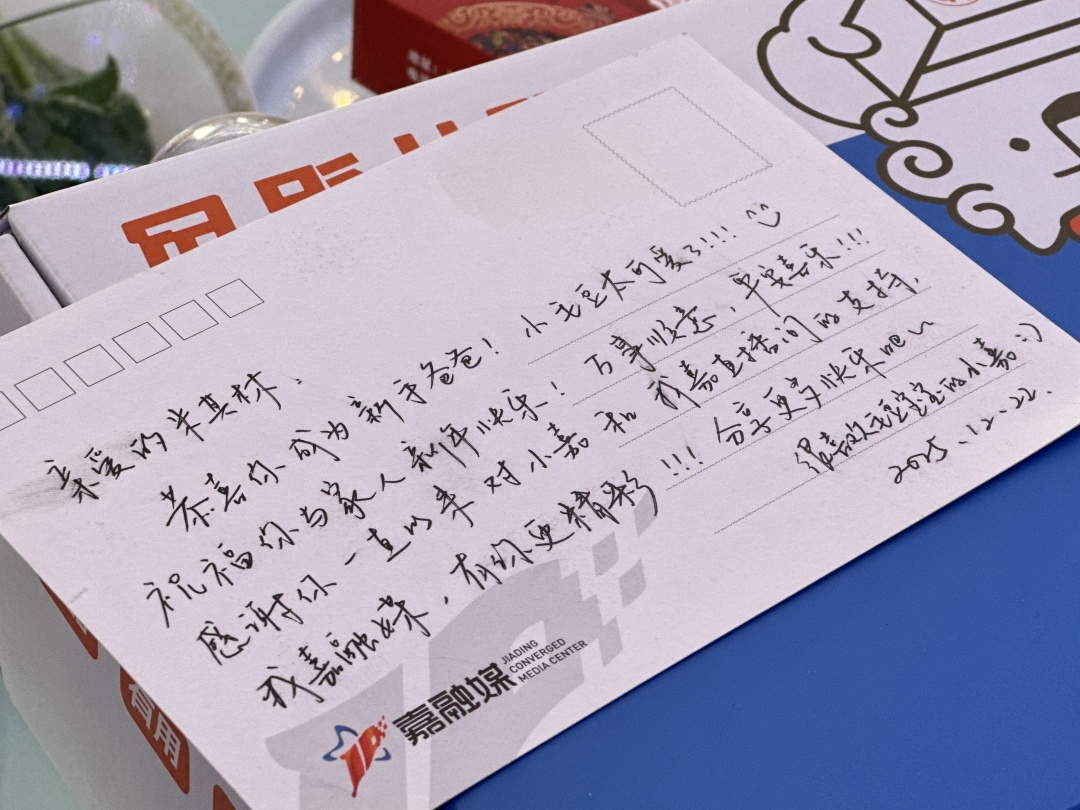 亲爱的米其林、
恭喜你成为新手爸爸！小毛豆太可爱了!!!!
祝福你与家人新年快乐！万事顺意，平安喜乐!!!
感谢你一直以来对小嘉和我嘉直播间的支持，
我嘉融媒，有你更精彩!!! 分享更多快乐吧~
很喜欢毛豆宝宝的小嘉:)
2025.12.22.
嘉融媒
JIADING
CONVERGED
MEDIA CENTER
有用